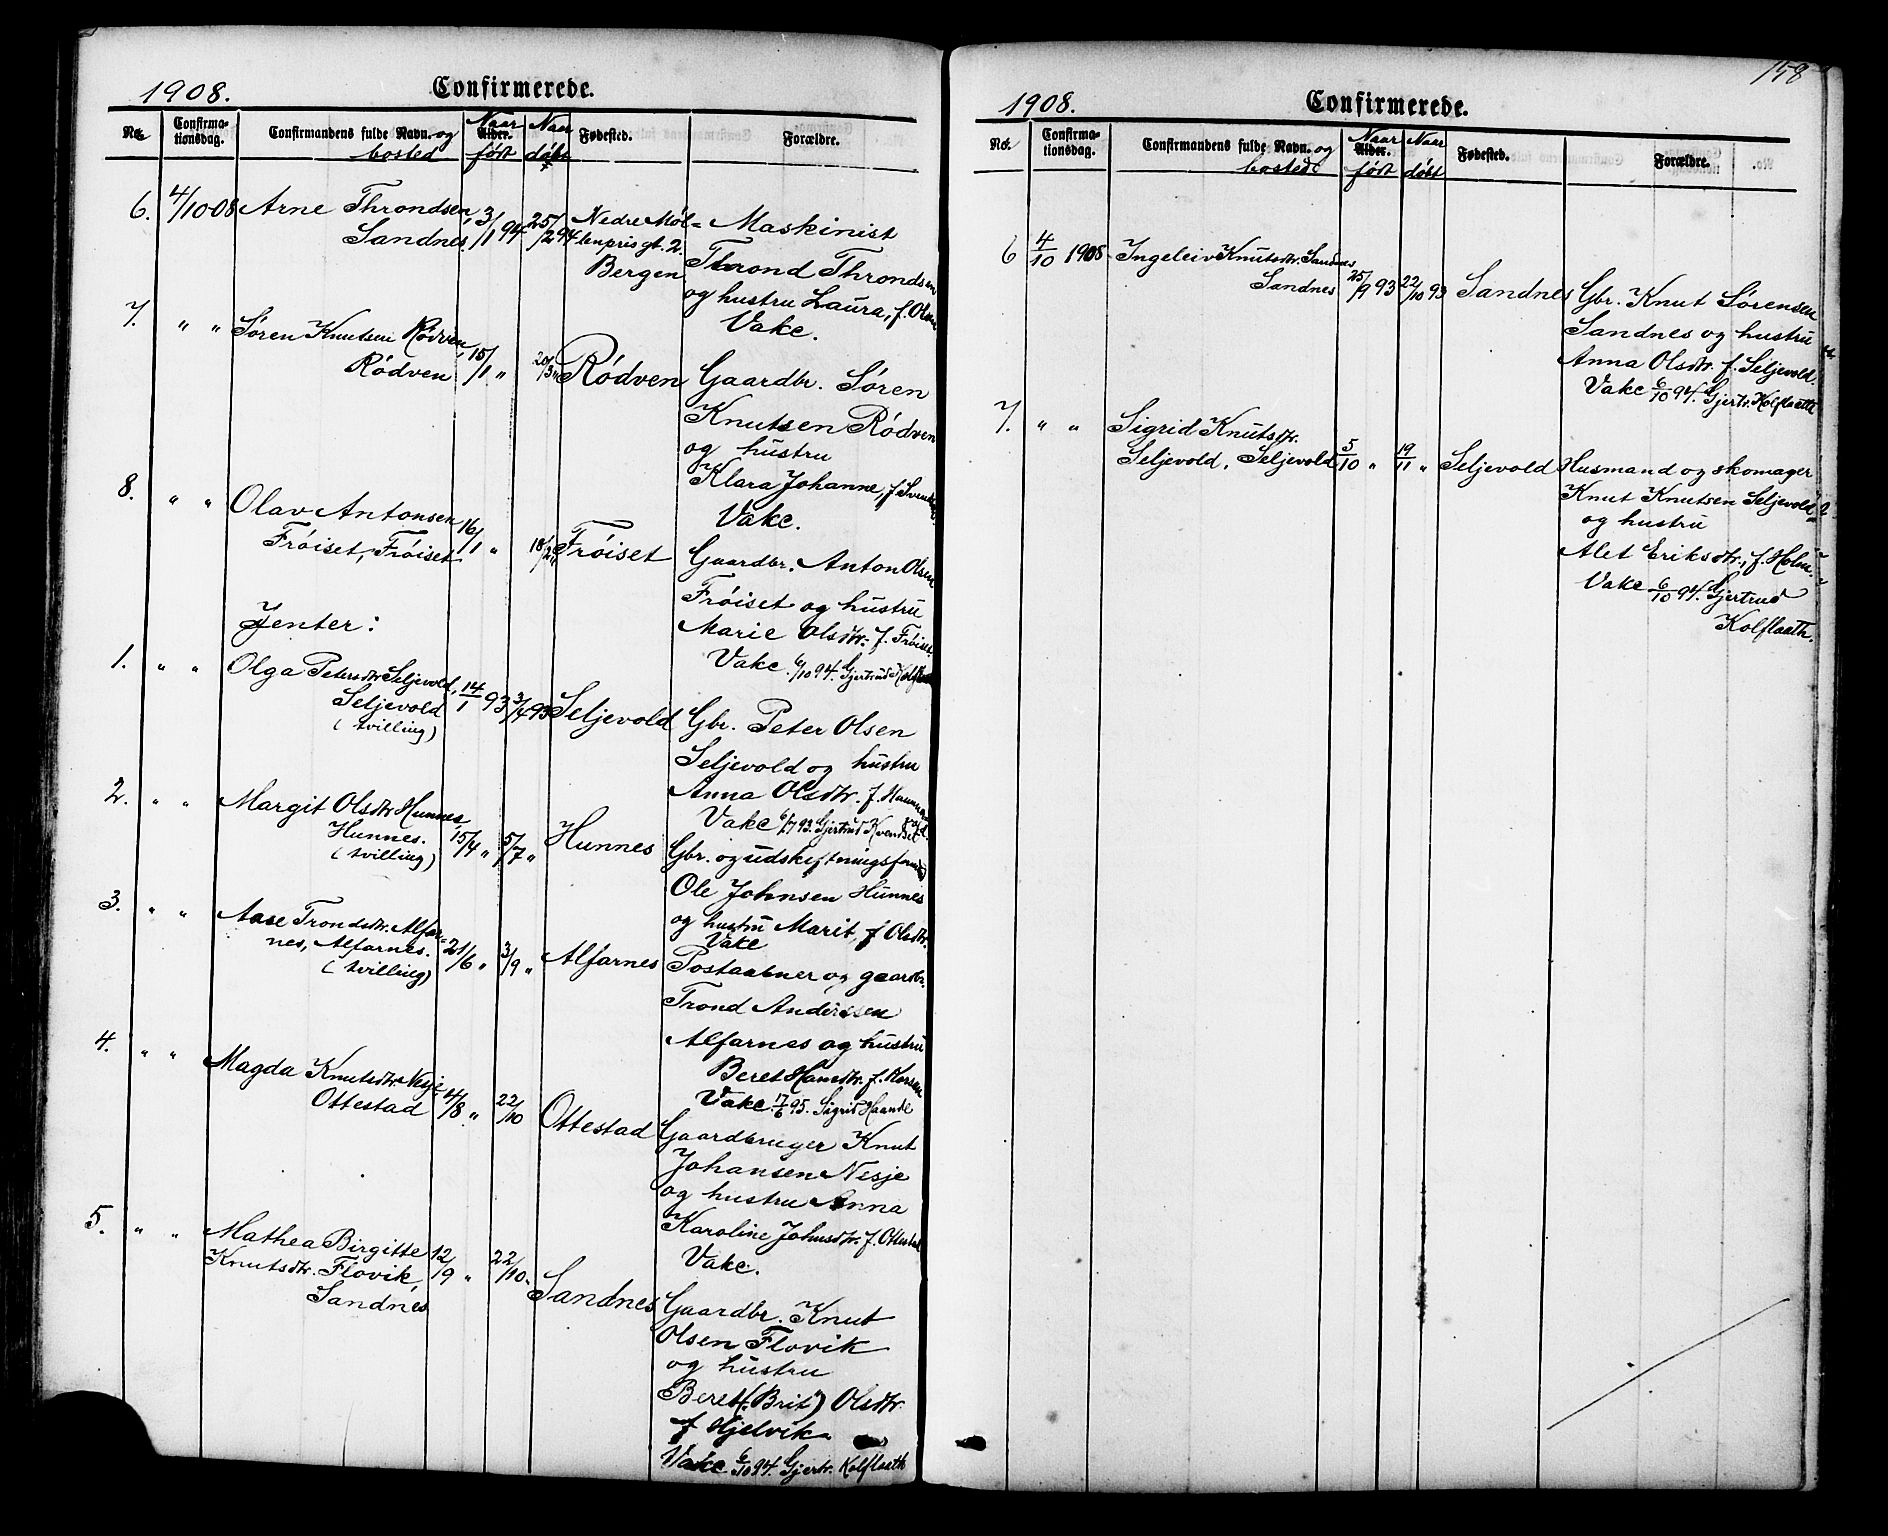 1908. Confirmerede.
No. Confirma-tionsdag. Confirmandens fulde Navn. og bosted Alder. Naar født Naar døbt Fødested. Forældre.
6. 4/10-08 Arne Throndsen, 3/1 94 25/2 94 Nedre Møl= Maskinist
Sandnes lenpris gt. 2. Thrond Throndsen
Bergen og hustru Laura, f. Olsen
Vakc.
7. " " Søren Knutsen Rødven, 15/1 " 20/3 " Rødven Gaardbr. Søren
Rødven Knutsen Rødven
og hustru
Klara Johanne, f.
Vakc.
8. " " Olav Antonsen 16/1 " 18/2 " Frøiset Gaardbr. Anton Olsen
Frøiset, Frøiset Frøiset og hustru
Marie Olsdtr. f. Frøiset.
Vakc. 6/10 94. Gjertrud Kolflaath
Jenter:
1. " " Olga Petersdtr. Seljevold, 14/1 93 3/4 93 Seljevold Gbr. Peter Olsen
Seljevold Seljevold og hustru
(tvilling) Anna Olsdtr. f.
Vakc 93 Gjertrud
2. " " Margit Olsdtr. Hunnes, 15/4 " 5/7 " Hunnes Gbr. og udskiftningsformd
Hunnes. Ole Johnsen Hunnes
(tvilling) og hustru Marit, f Olsdtr.
Vakc
3. " " Aase Trondsdtr. Alfar= 21/6 " 3/9 " Alfarnes Postaabner og gaardbr.
nes, Alfarnes. Trond Anderssen
(tvilling) Alfarnes og hustru
Beret Hansdtr. f.
Vakc. 17/6 95. Sigrid Haande
4. " " Magda Knutsdtr. Nesje 4/8 " 22/10 Ottestad Gaardbruger Knut
Ottestad Johansen Nesje
og hustru Anna
Karoline Johnsdtr. f. Ottestad
Vakc.
5. " " Mathea Birgitte 12/9 " 22/10 " Sandnes Gaardbr. Knut
Knutsdtr. Flovik, Olsen Flovik
Sandnes og hustru
Beret (Brit) Olsdtr.
f Hjelvik.
Vakc 6/10 94. Gjertr. Kolflaath
158
1908. Confirmerede.
No. Confirma-tionsdag. Confirmandens fulde Navn. og bosted Alder. Naar født Naar døbt Fødested. Forældre.
6 4/10 1908 Ingeleiv Knutsdtr. Sandnes 25/9 93 22/10 93 Sandnes Gbr. Knut Sørensen
Sandnes Sandnes og hustru
Anna Olsdtr. f. Seljevold.
Vakc 6/10 94. Gjertr. Kolflaath
7. " " Sigrid Knutsdtr. 5/10 " 19/11 " Seljevold Husmand og skomager
Seljevold, Seljevold Knut Knutsen Seljevold
og hustru
Alet Eriksdtr., f. Holm.
Vakc 6/10 94. Gjertrud
Kolflaath.